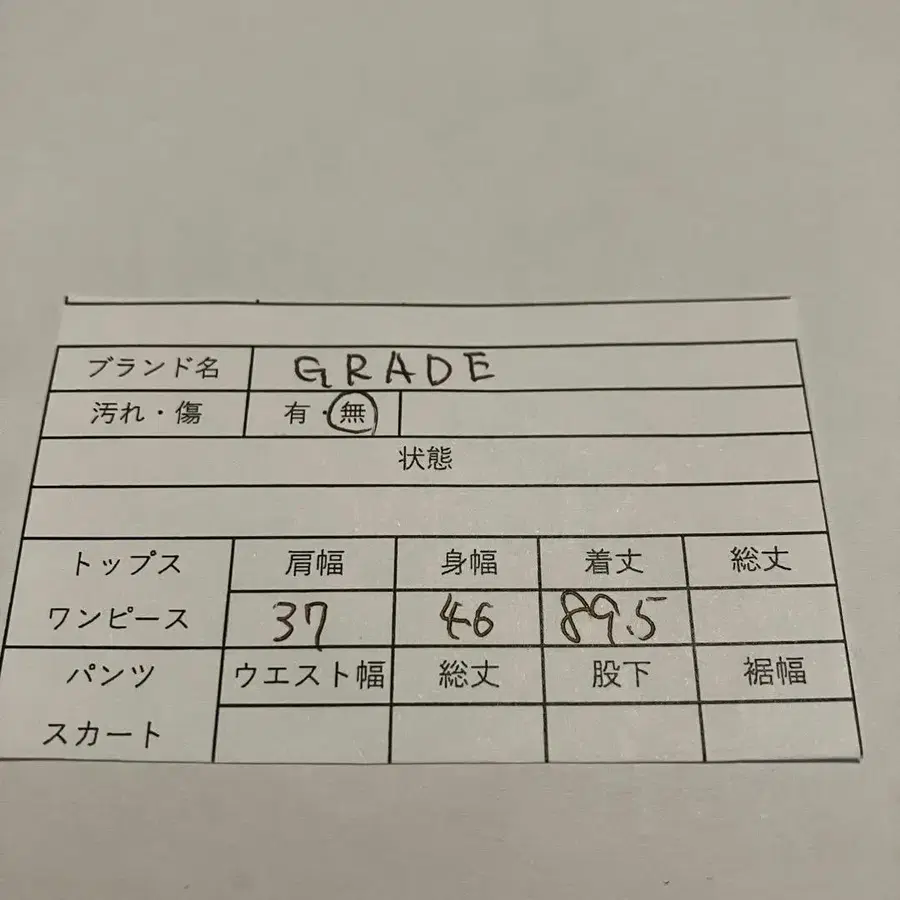 ブランド名 GRADE
汚れ・傷 有・無
状態
トップス 肩幅 身幅 着丈 総丈
ワンピース 37 46 89.5
パンツ ウエスト幅 総丈 股下 裾幅
スカート